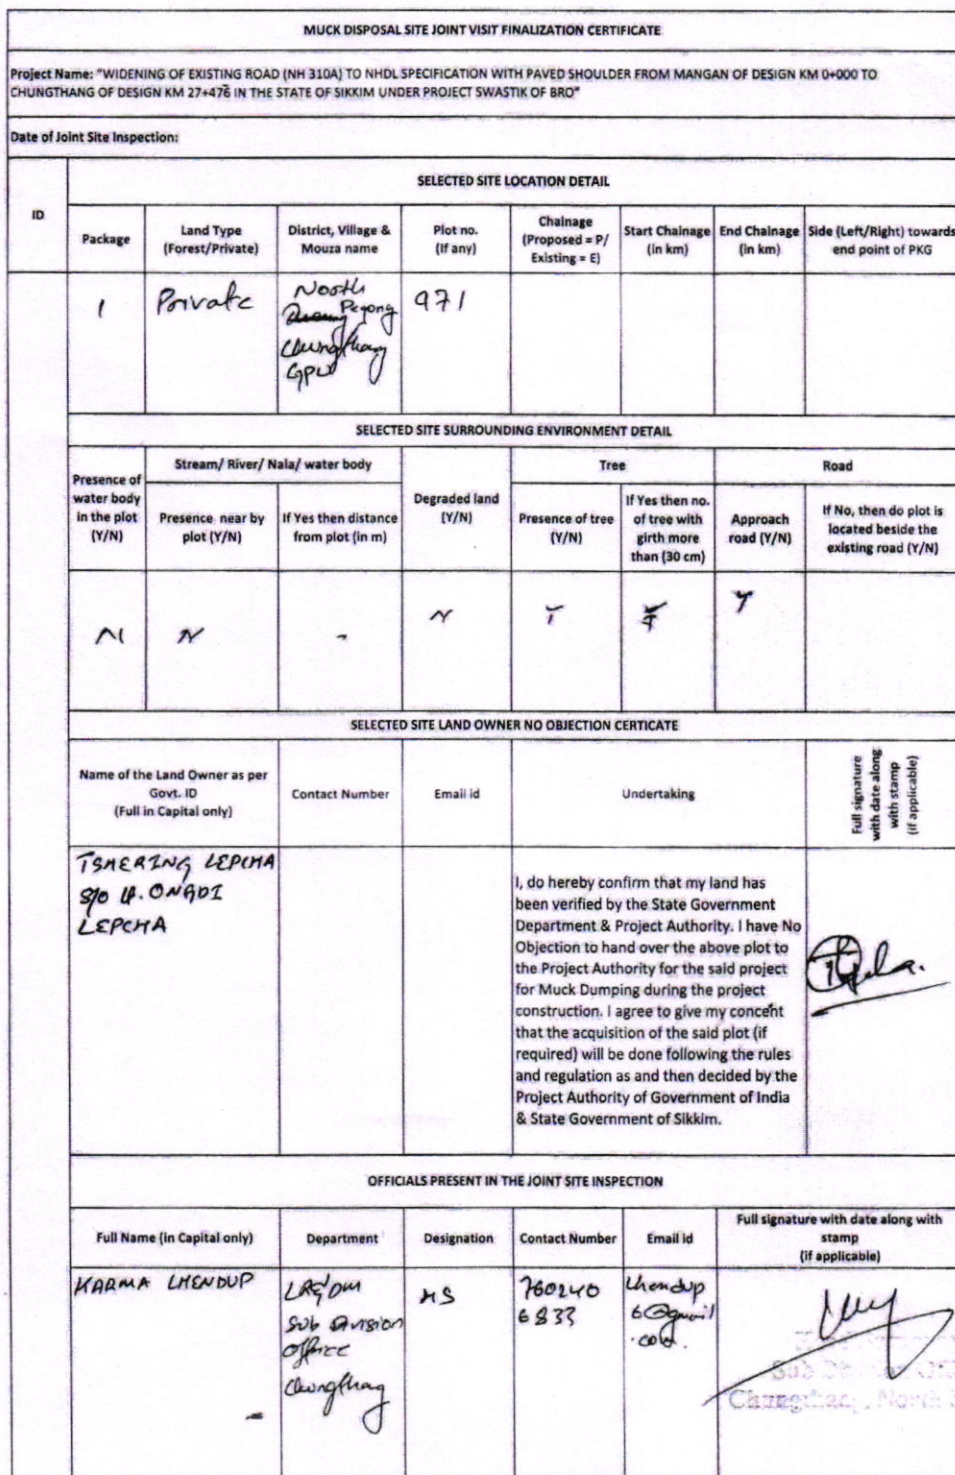 MUCK DISPOSAL SITE JOINT VISIT FINALIZATION CERTIFICATE
Project Name: "WIDENING OF EXISTING ROAD (NH 310A) TO NHDL SPECIFICATION WITH PAVED SHOULDER FROM MANGAN OF DESIGN KM 0+000 TO
CHUNGTHANG OF DESIGN KM 27+476 IN THE STATE OF SIKKIM UNDER PROJECT SWASTIK OF BRO"
Date of Joint Site Inspection:
ID
SELECTED SITE LOCATION DETAIL
Package
Land Type
(Forest/Private)
District, Village &
Mouza name
Plot no.
(If any)
Chainage
(Proposed = P/
Existing = E)
Start Chainage
(in km)
End Chainage
(in km)
Side (Left/Right) towards
end point of PKG
1
Private
North
Pegong
Chungthang
GPU
971
SELECTED SITE SURROUNDING ENVIRONMENT DETAIL
Presence of
water body
in the plot
(Y/N)
Stream/ River/ Nala/ water body
Presence near by
plot (Y/N)
If Yes then distance
from plot (in m)
Degraded land
(Y/N)
Tree
Presence of tree
(Y/N)
If Yes then no.
of tree with
girth more
than (30 cm)
Road
Approach
road (Y/N)
If No, then do plot is
located beside the
existing road (Y/N)
N
N
-
N
Y
Y
SELECTED SITE LAND OWNER NO OBJECTION CERTICATE
Name of the Land Owner as per
Govt. ID
(Full in Capital only)
Contact Number
Email id
Undertaking
Full signature
with date along
with stamp
(if applicable)
TSHERING LEPCHA
S/O Lt. ONGDI
LEPCHA
I, do hereby confirm that my land has
been verified by the State Government
Department & Project Authority. I have No
Objection to hand over the above plot to
the Project Authority for the said project
for Muck Dumping during the project
construction. I agree to give my concent
that the acquisition of the said plot (if
required) will be done following the rules
and regulation as and then decided by the
Project Authority of Government of India
& State Government of Sikkim.
OFFICIALS PRESENT IN THE JOINT SITE INSPECTION
Full Name (in Capital only)
Department
Designation
Contact Number
Email id
Full signature with date along with
stamp
(if applicable)
KARMA LHENDUP
LR&DM
Sub Division
Office
Chungthang
760240
6833
Lhendup
6@gmail
.com.